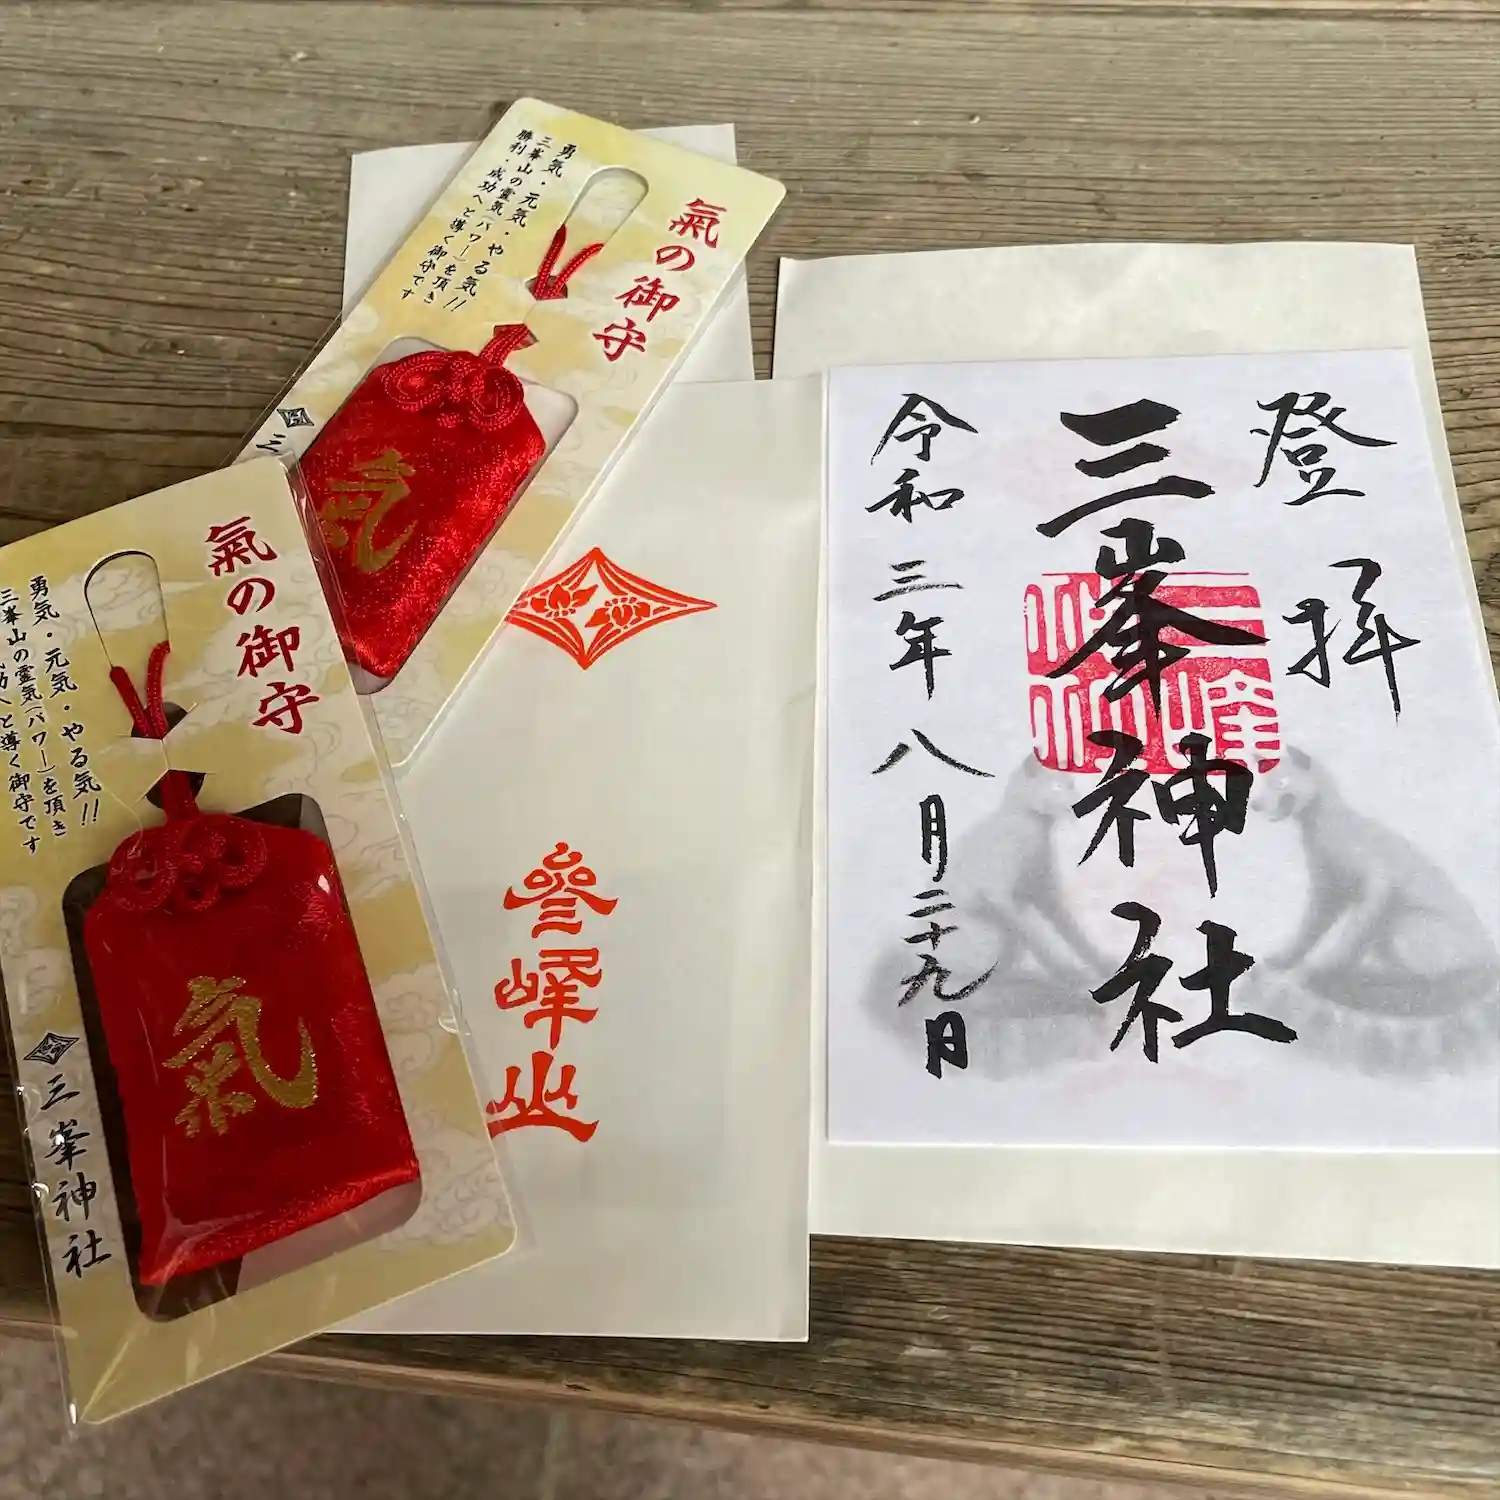 氣の御守
勇気・元気・やる気!!
三峯山の霊気(パワー)を頂き
勝利・成功へと導く御守です
氣
三
氣の御守
勇気・元気・やる気!!
三峯山の霊気(パワー)を頂き
功へと導く御守です
氣
三峯神社
參峰山
登拝
三峯神社
令和三年八月二十九日